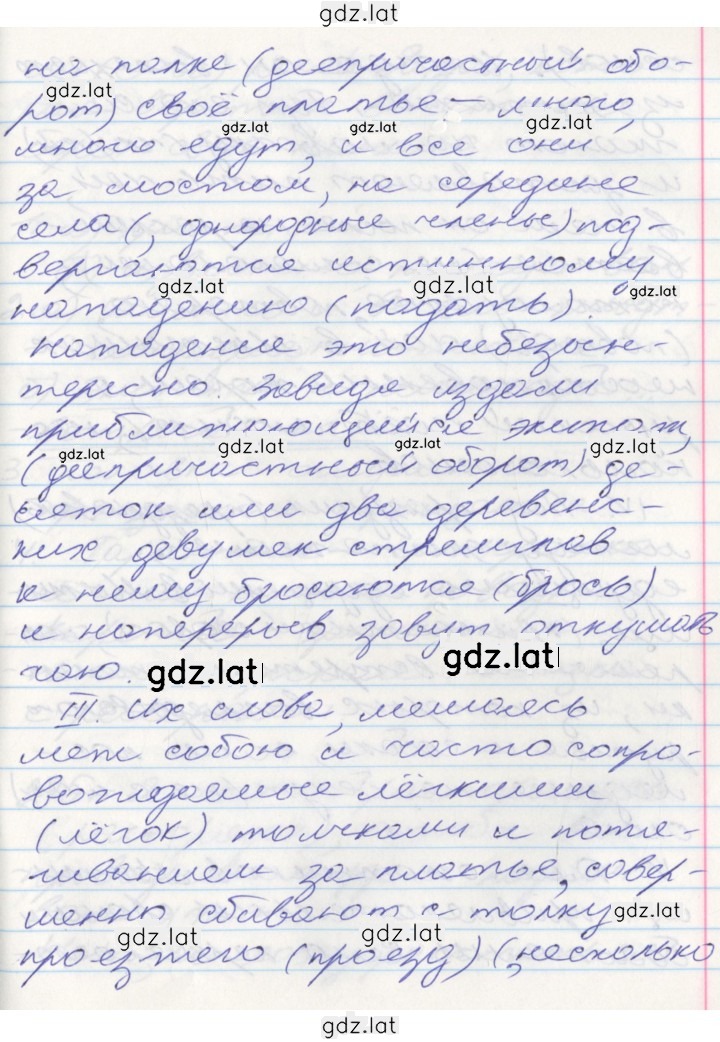 gdz.lat
на палке (деепричастный обо-
gdz.lat
рот) своё платье – много,
gdz.lat gdz.lat gdz.lat
много едут, и все они
за мостом, на середине
села (, однородные члены) под-
вергаются истинному
gdz.lat gdz.lat gdz.lat
нападению (падать).
Нападение это небезын-
тересно. Завидя издали
приближающийся экипаж,
gdz.lat gdz.lat gdz.lat gdz.lat
(деепричастный оборот) де-
сяток или два деревенс-
ких девушек стремглав
к нему бросаются (брось)
и наперерыв зовут откушать
чаю.
gdz.lat gdz.lat
III. Их слова, мешаясь
меж собою и часто сопро-
вождаемые лёгкими
(лёгок) толчками и потя-
гиванием за платье, совер-
шенно сбивают с толку
gdz.lat gdz.lat gdz.lat
проезжего (проезд) (, несколько
gdz.lat